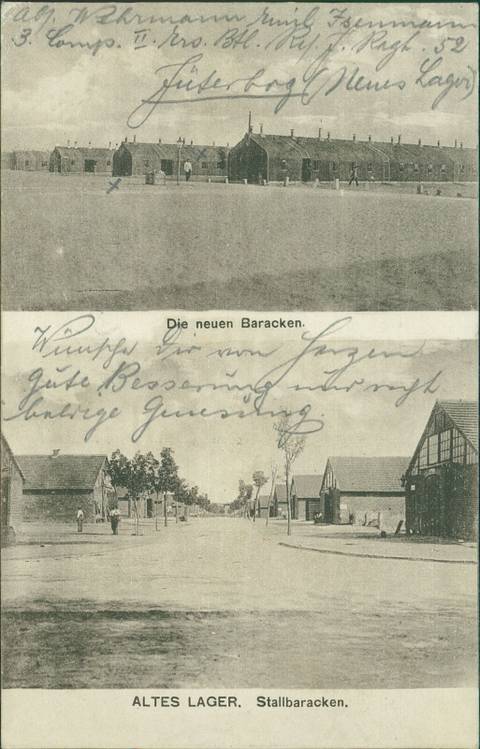 Abs. Wehrmann Emil Isenmann
3. Comp. II. Ers. Btl. Res. J. Regt. 52
Jüterbog (Neues Lager)
Die neuen Baracken.
Wünsche Dir von Herzen
Gute Besserung und recht
baldige Genesung.
ALTES LAGER. Stallbaracken.